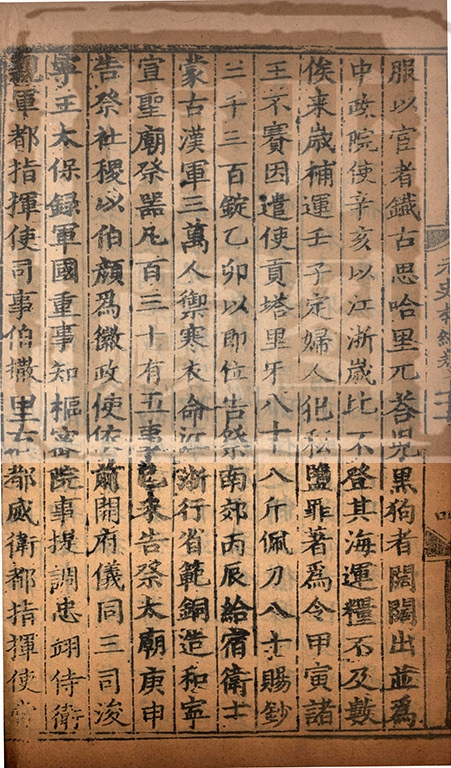 服以官者鐵古思哈里兀荅兒黑狗者闊闊出並爲
中政院使辛亥以江浙歲比不登其海運糧不及數
俟來歲補運壬子定婦人犯私鹽罪著爲令甲寅諸
王不賽因遣使貢塔里牙八十八斤佩刀八十賜鈔
三千三百錠乙卯以即位告祭南郊丙辰給宿衛士
蒙古漢軍三萬人禦寒衣命江浙行省範銅造和寧
宣聖廟祭器凡百三十有五事己未告祭太廟庚申
告祭社稷以伯顏爲徽政使依前開府儀同三司浚
寧王太保錄軍國重事知樞密院事提調忠翊侍衛
親軍都指揮使司事伯撒里右都威衛都指揮使常
元史本紀卷
四